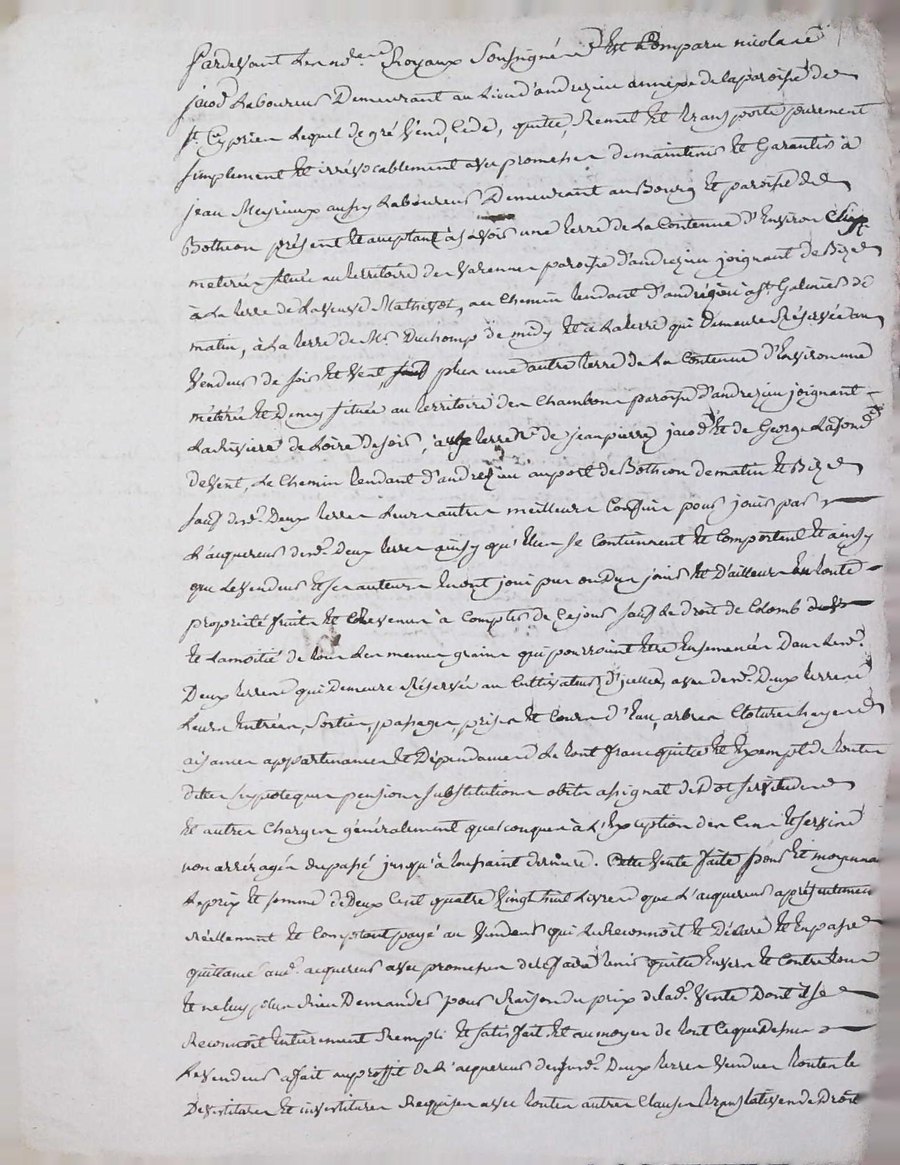 Pardevant Les nd.res Royaux Soussignés Est Comparu nicolas
jacod Laboureur Demeurant au Lieu d'andrezieu annexe de la paroisse de
St. Cyprien Lequel de gré Vend, Cede, quitte, Remet Et transporte purement
simplement Et irrévocablement avec promesse de maintenir Et Garantir à
jean Meyrieux aussy Laboureur Demeurant au Bourg Et paroisse de
Botheon présent Et acceptant àsavoir une terre de La Contenue d'Environ Cinq
meterée située au territoire de Varenne paroisse d'andrezieu joignant de Bize
à La terre de La veuve Mathevot, au Chemin tendant d'andrézieu a St. Galmier de
matin, à La terre de Mr. Duchomp de midy Et à La terre qui Demeure Réservée au
Vendeur de soir Et Vent plus une autre terre de La Contenue d'Environ une
méterée Et Demy située au territoire des Chambons paroisse d'andrezieu joignant
La Rivière de Loire de soir, à terre de jean pierre jacod Et de George Lafond
de Vent, Le Chemin tendant d'andrezieu au port de Botheon de matin Et Bize
sauf desd. Deux terres Leurs autres meilleurs Confins pour jouir par
L'acquereur desd. Deux terres ainsy qu'Elles se Contiennent Et Comportent Et ainsy
que Le Vendeur Et ses auteurs En ont joui pu ou du jouir Et D'ailleurs En toute
propriété fruits Et Revenus à Compter de Ce jour sauf Le droit de Colomb
Et La moitié de tous Les menus grains qui pourroient Etre Ensemencés Dans Lesd.
Deux terres qui demeure Réservée au Cultivateur d'icelles, avec desd. Deux terres
Leurs Entrées, Sorties, passages, prises Et Cours d'Eau, arbres Clotures hayes
aisances appartenances Et Dépendances Le tout franc quitte Et Exempt de toutes
dettes hypoteques pensions substitutions obits assignat de Dot servitudes
Et autres Charges généralement quelconques à L'Exception des Cens Et servis
non arréragés du passé jusqu'à toussaint dernière. Cette Vente faite pour Et moyennant
Le prix Et somme de Deux Cent quatre Vingt huit Livres que L'acquereur a présentement
réellement Et Comptant payé au Vendeur qui Le Reconnoit Et Déclare Et En passe
quittance aud. acquereur avec promesse de Le faire tenir quitte Envers Et Contre tous
Et ne luy plus Rien Demander pour Raison du prix de lad. Vente Dont il se
Reconnoit Entièrement Rempli Et satisfait Et au moyen de tout Ce que Dessus
Le Vendeur a fait au proffit de L'acquereur desd. Deux terres Vendues toutes les
Devestitures Et investitures Requises avec toutes autres Clauses translatives de Droit